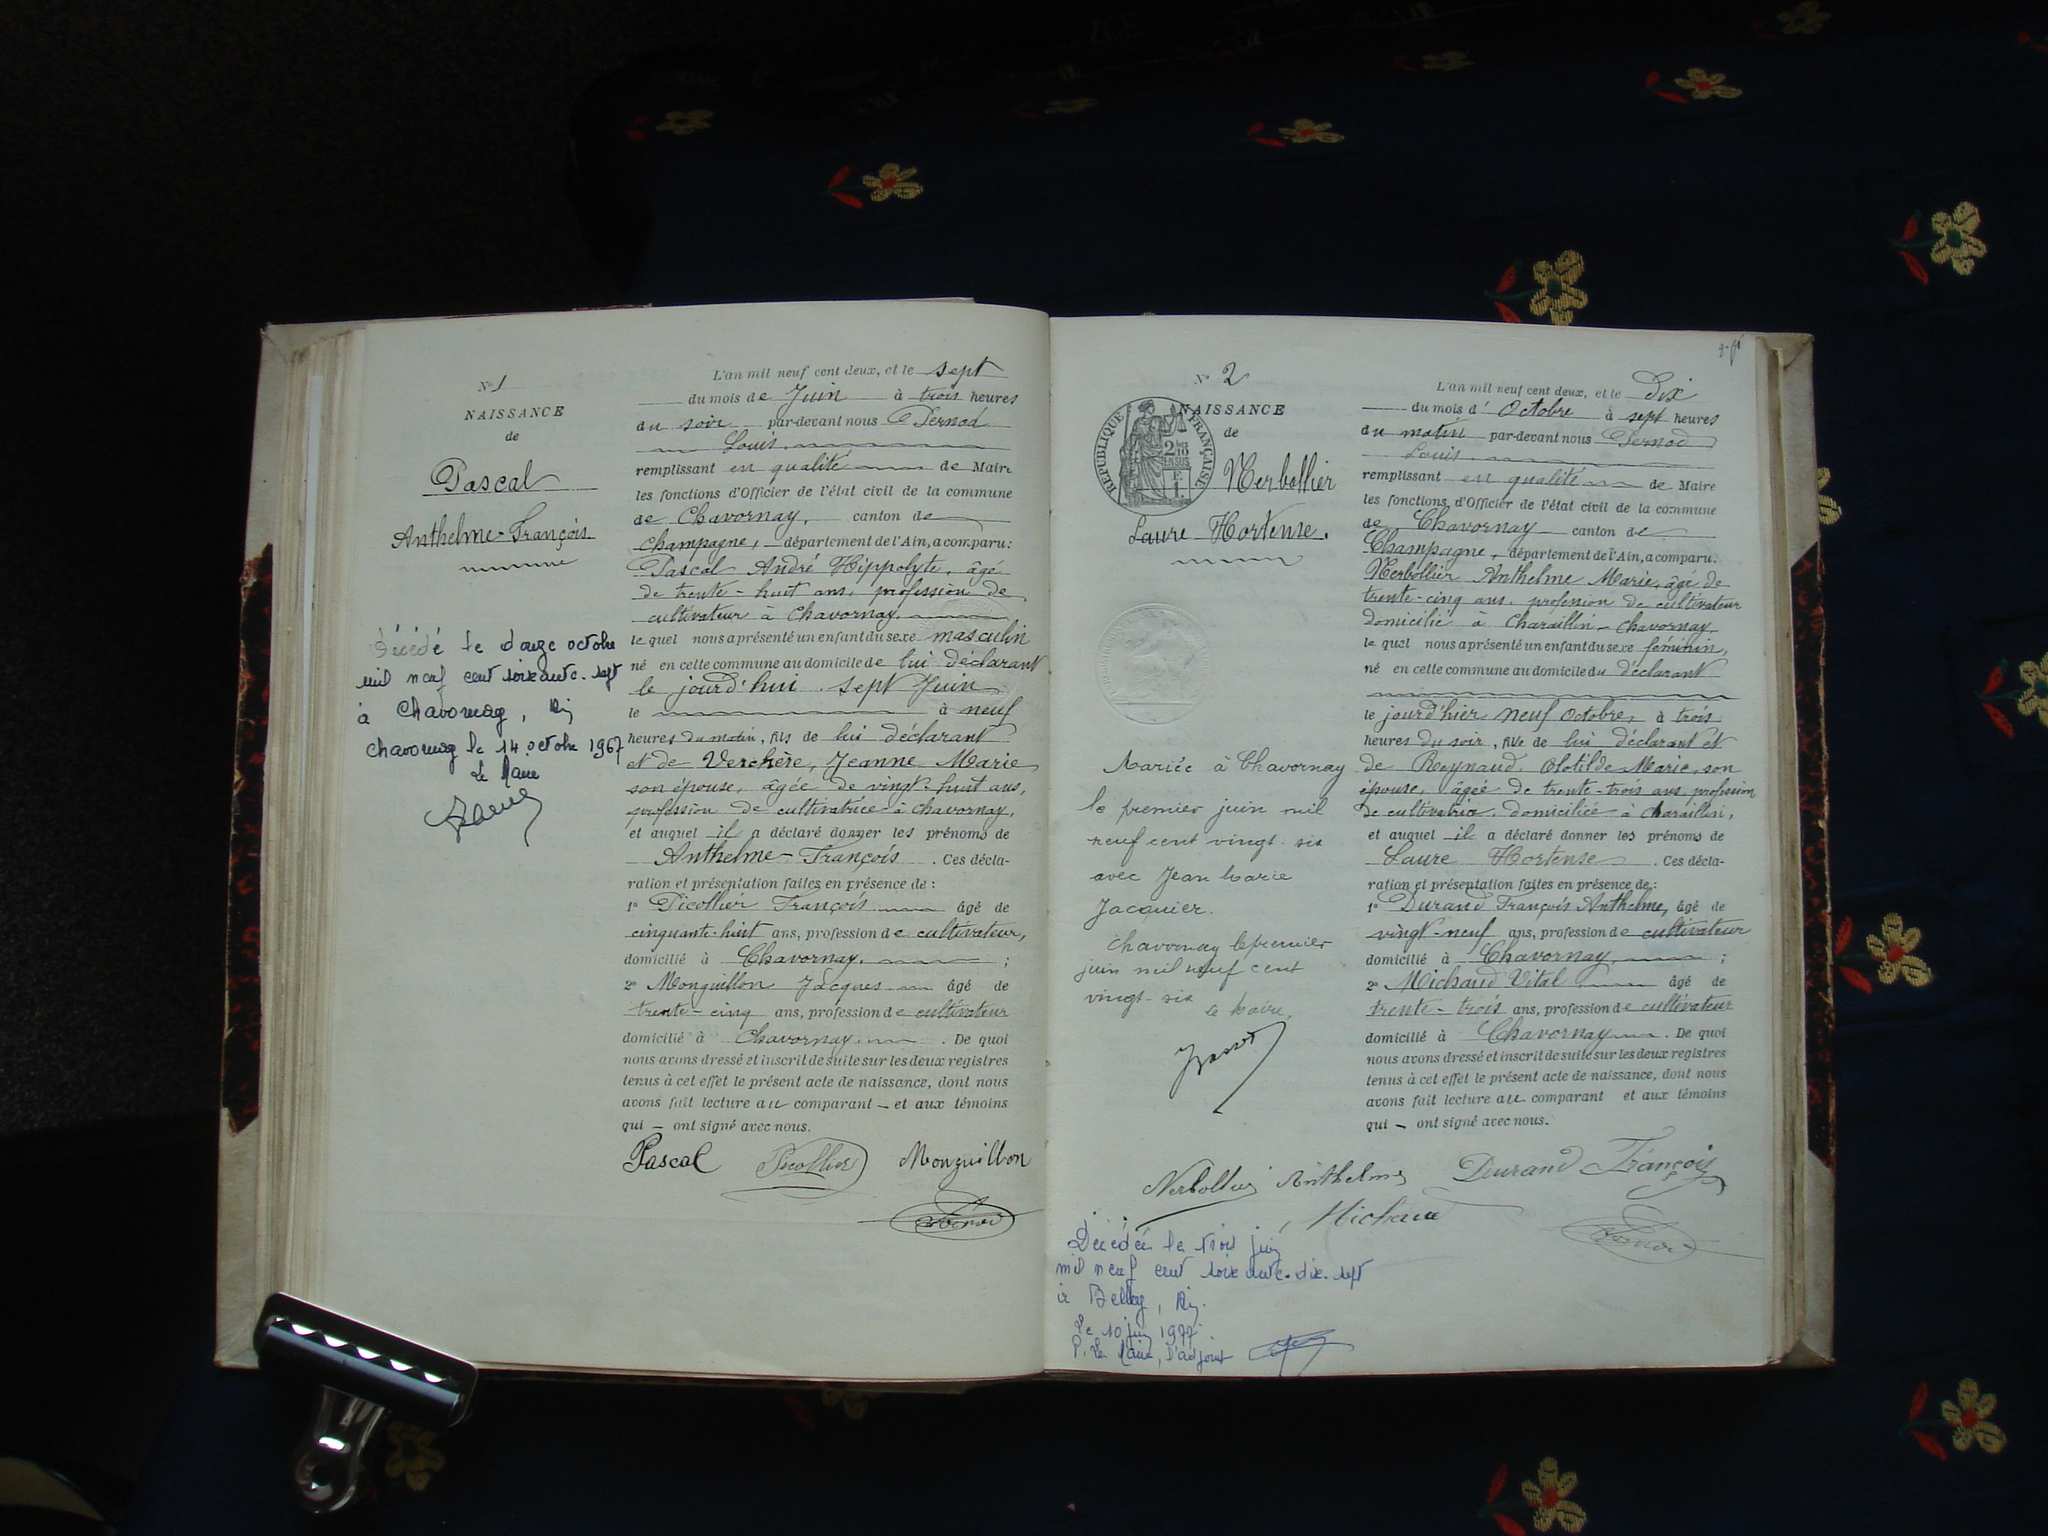 N° 1
NAISSANCE
de
Pascal
Anthelme-François
Décédé le douze octobre
mil neuf cent soixante-sept
à Chavornay, Ain
Chavornay le 14 octobre 1967
Le Maire
L'an mil neuf cent deux, et le sept
du mois de Juin à trois heures
du soir par-devant nous Pernod
Louis
remplissant en qualité de Maire
les fonctions d'Officier de l'état civil de la commune
de Chavornay, canton de
Champagne, département de l'Ain, a comparu:
Pascal André Hippolyte, âgé
de trente-huit ans, profession de
cultivateur à Chavornay
lequel nous a présenté un enfant du sexe masculin
né en cette commune au domicile de lui déclarant
le jourd'hui sept Juin
le à neuf
heures du matin, fils de lui déclarant
et de Verchère, Jeanne Marie
son épouse, âgée de vingt-huit ans,
profession de cultivatrice à Chavornay,
et auquel il a déclaré donner les prénoms de
Anthelme-François. Ces décla-
ration et présentation faites en présence de:
1° Picollier François âgé de
cinquante-huit ans, profession de cultivateur,
domicilié à Chavornay. ;
2° Monguillon Jacques âgé de
trente-cinq ans, profession de cultivateur
domicilié à Chavornay. De quoi
nous avons dressé et inscrit de suite sur les deux registres
tenus à cet effet le présent acte de naissance, dont nous
avons fait lecture au comparant et aux témoins
qui ont signé avec nous.
Pascal Picollier Monguillon
Pernod
N° 2
NAISSANCE
de
REPUBLIQUE FRANÇAISE
Nerbollier
Laure Hortense.
Mariée à Chavornay
le premier juin mil
neuf cent vingt-six
avec Jean Marie
Jacquier.
Chavornay le premier
juin mil neuf cent
vingt-six
le Maire,
L'an mil neuf cent deux, et le Dix
du mois d'Octobre à sept heures
du matin par-devant nous Pernod
Louis
remplissant en qualité de Maire
les fonctions d'Officier de l'état civil de la commune
de Chavornay canton de
Champagne, département de l'Ain, a comparu:
Nerbollier Anthelme Marie, âgé de
trente-cinq ans, profession de cultivateur
domicilié à Charaillin-Chavornay,
lequel nous a présenté un enfant du sexe féminin,
né en cette commune au domicile du déclarant
le jourd'hier neuf Octobre, à trois
heures du soir, fille de lui déclarant et
de Reynaud, Clotilde Marie, son
épouse, âgée de trente-trois ans, profession
de cultivatrice, domiciliée à Charaillin,
et auquel il a déclaré donner les prénoms de
Laure Hortense. Ces décla-
ration et présentation faites en présence de:
1° Durand François Anthelme, âgé de
vingt-neuf ans, profession de cultivateur
domicilié à Chavornay, ;
2° Michaud Vital âgé de
trente-trois ans, profession de cultivateur
domicilié à Chavornay. De quoi
nous avons dressé et inscrit de suite sur les deux registres
tenus à cet effet le présent acte de naissance, dont nous
avons fait lecture au comparant et aux témoins
qui ont signé avec nous.
Nerbollier Anthelme Durand François
Michaud Pernod
Décédée le trois juin
mil neuf cent soixante-dix-sept
à Belley, Ain.
Le 10 juin 1977
P. Le Maire, L'adjoint